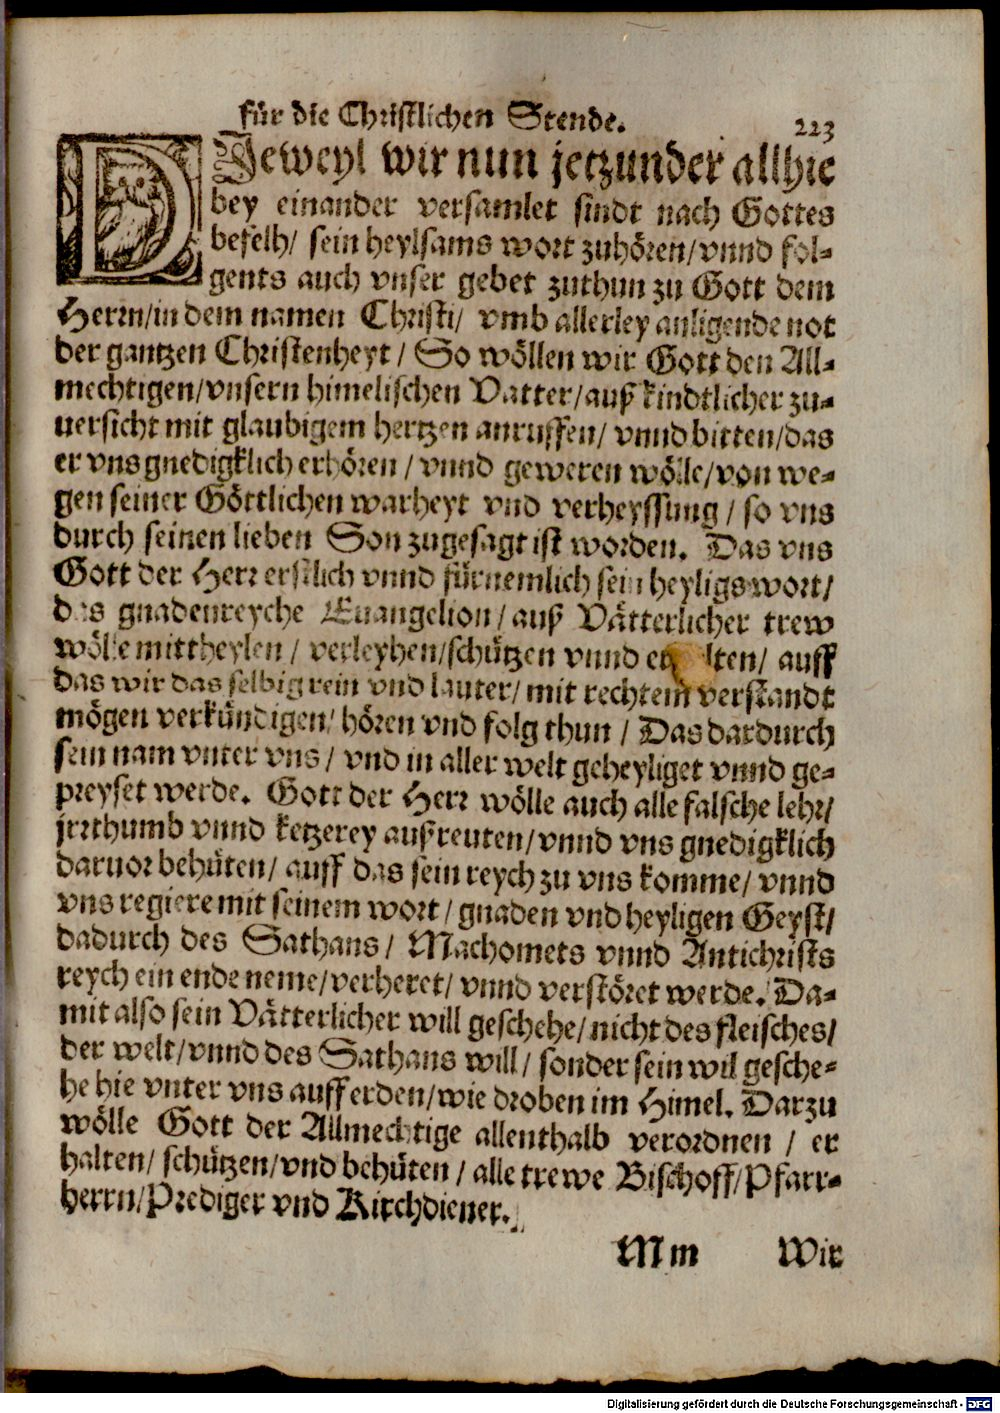 für die Christlichen Stende. 223
DJeweyl wir nun jetzunder allhie
bey einander versamlet sindt nach Gottes
befelh/ sein heylsams wort zuhören/vnnd fol-
gents auch vnser gebet zuthun zu Gott dem
Herrn/in dem namen Christi/ vmb allerley anligende not
der gantzen Christenheyt/ So wöllen wir Gott den All-
mechtigen/vnsern himelischen Vatter/auß kindtlicher zu-
uersicht mit glaubigem hertzen anruffen/ vnnd bitten/das
er vns gnedigklich erhören/ vnnd geweren wölle/von we-
gen seiner Göttlichen warheyt vnd verheyssung/ so vns
durch seinen lieben Son zugesagt ist worden. Das vns
Gott der Herr erstlich vnnd fürnemlich sein heyligs wort/
das gnadenreyche Euangelion/ auß Vätterlicher trew
wölle mittheylen/ verleyhen/schützen vnnd er lten/ auff
das wir das selbig rein vnd lauter/ mit rechtem verstandt
mögen verkündigen/ hören vnd folg thun/ Das dardurch
sein nam vnter vns/ vnd in aller welt geheyliget vnnd ge-
preyset werde. Gott der Herr wölle auch alle falsche lehr/
jrrthumb vnnd ketzerey außreuten/vnnd vns gnedigklich
daruor behüten/ auff das sein reych zu vns komme/ vnnd
vns regiere mit seinem wort/ gnaden vnd heyligen Geyst/
dadurch des Sathans/ Machomets vnnd Antichrists
reych ein ende neme/verheret/ vnnd verstöret werde. Da-
mit also sein Vätterlicher will geschehe/nicht des fleisches/
der welt/vnnd des Sathans will/ sonder sein wil gesche-
he hie vnter vns auff erden/wie droben im Himel. Darzu
wölle Gott der Allmechtige allenthalb verordnen/ er
halten/ schützen/vnd behüten/ alle trewe Bischoff/Pfarr-
herrn/Prediger vnd Kirchdiener.
Mm Wir
Digitalisierung gefördert durch die Deutsche Forschungsgemeinschaft - DFG